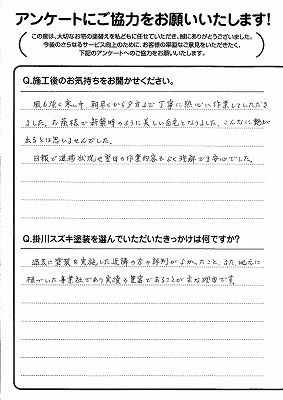 アンケートにご協力をお願いいたします!
この度は、大切なお宅の塗替えを私どもに任せていただき、誠にありがとうございました。
今後のさらなるサービス向上のために、お客様の率直なご意見をいただきたく、
下記のアンケートへのご協力をお願いいたします。
Q.施工後のお気持ちをお聞かせください。
風も強く寒い中、朝早くから夕方まで丁寧に熱心に作業してくださり
ました。お蔭様で新築時のように美しい自宅となりました。こんなに艶が
出るとは思いませんでした。
日報で進捗状況や翌日の作業内容もよく理解でき安心でした。
Q.掛川スズキ塗装を選んでいただいたきっかけは何ですか?
過去に塗装を実施した近隣の方の評判がよかったこと、また、地元に
根づいた事業社であり実績も豊富であることが主な理由です。